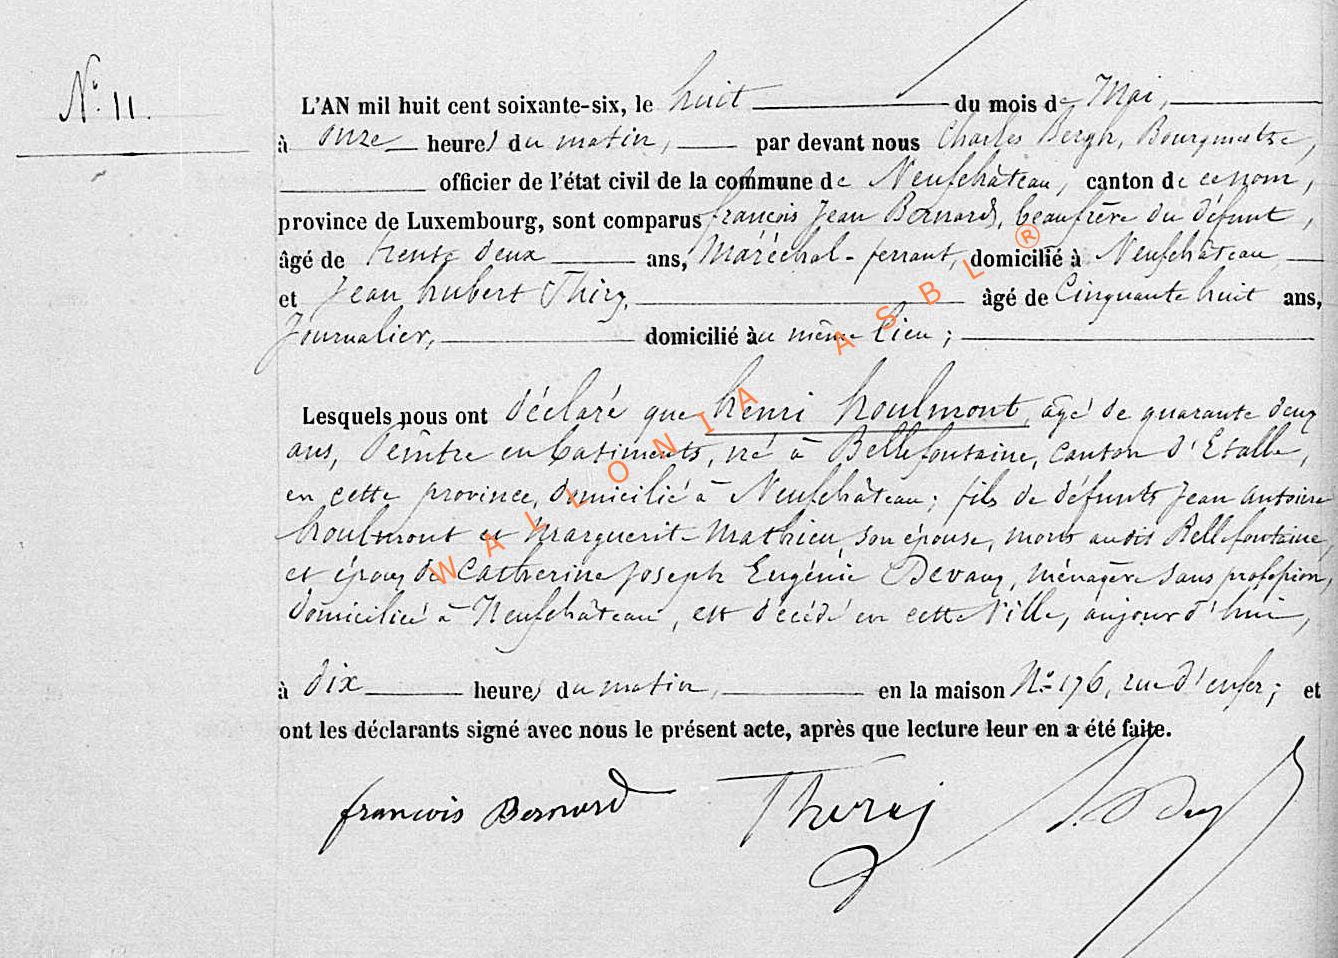 N° 11.
L'AN mil huit cent soixante-six, le huit du mois de Mai,
à onze heures du matin, par devant nous Charles Bergh, Bourgmestre,
officier de l'état civil de la commune de Neufchâteau, canton de ce nom,
province de Luxembourg, sont comparus françois Jean Bernard, beaufrère du défunt,
âgé de trente deux ans, Maréchal-ferrant, domicilié à Neufchâteau
et Jean hubert Thiry, âgé de Cinquante huit ans,
Journalier, domicilié au même lieu;
Lesquels nous ont déclaré que henri houlmont, âgé de quarante deux
ans, Peintre en batiments, né à Bellefontaine, canton d'Etalle,
en cette province, domicilié à Neufchâteau; fils de défunts Jean antoine
houlmont et Marguerite Mathieu, son épouse, morts audit Bellefontaine,
et époux de Catherine Joseph Eugénie Devaux, ménagère sans profession,
domiciliée à Neufchâteau, est décédé en cette Ville, aujourd'hui,
à dix heures du matin, en la maison N° 176, rue d'enfer; et
ont les déclarants signé avec nous le présent acte, après que lecture leur en a été faite.
françois Bernard
WALLONIA ASBL ®